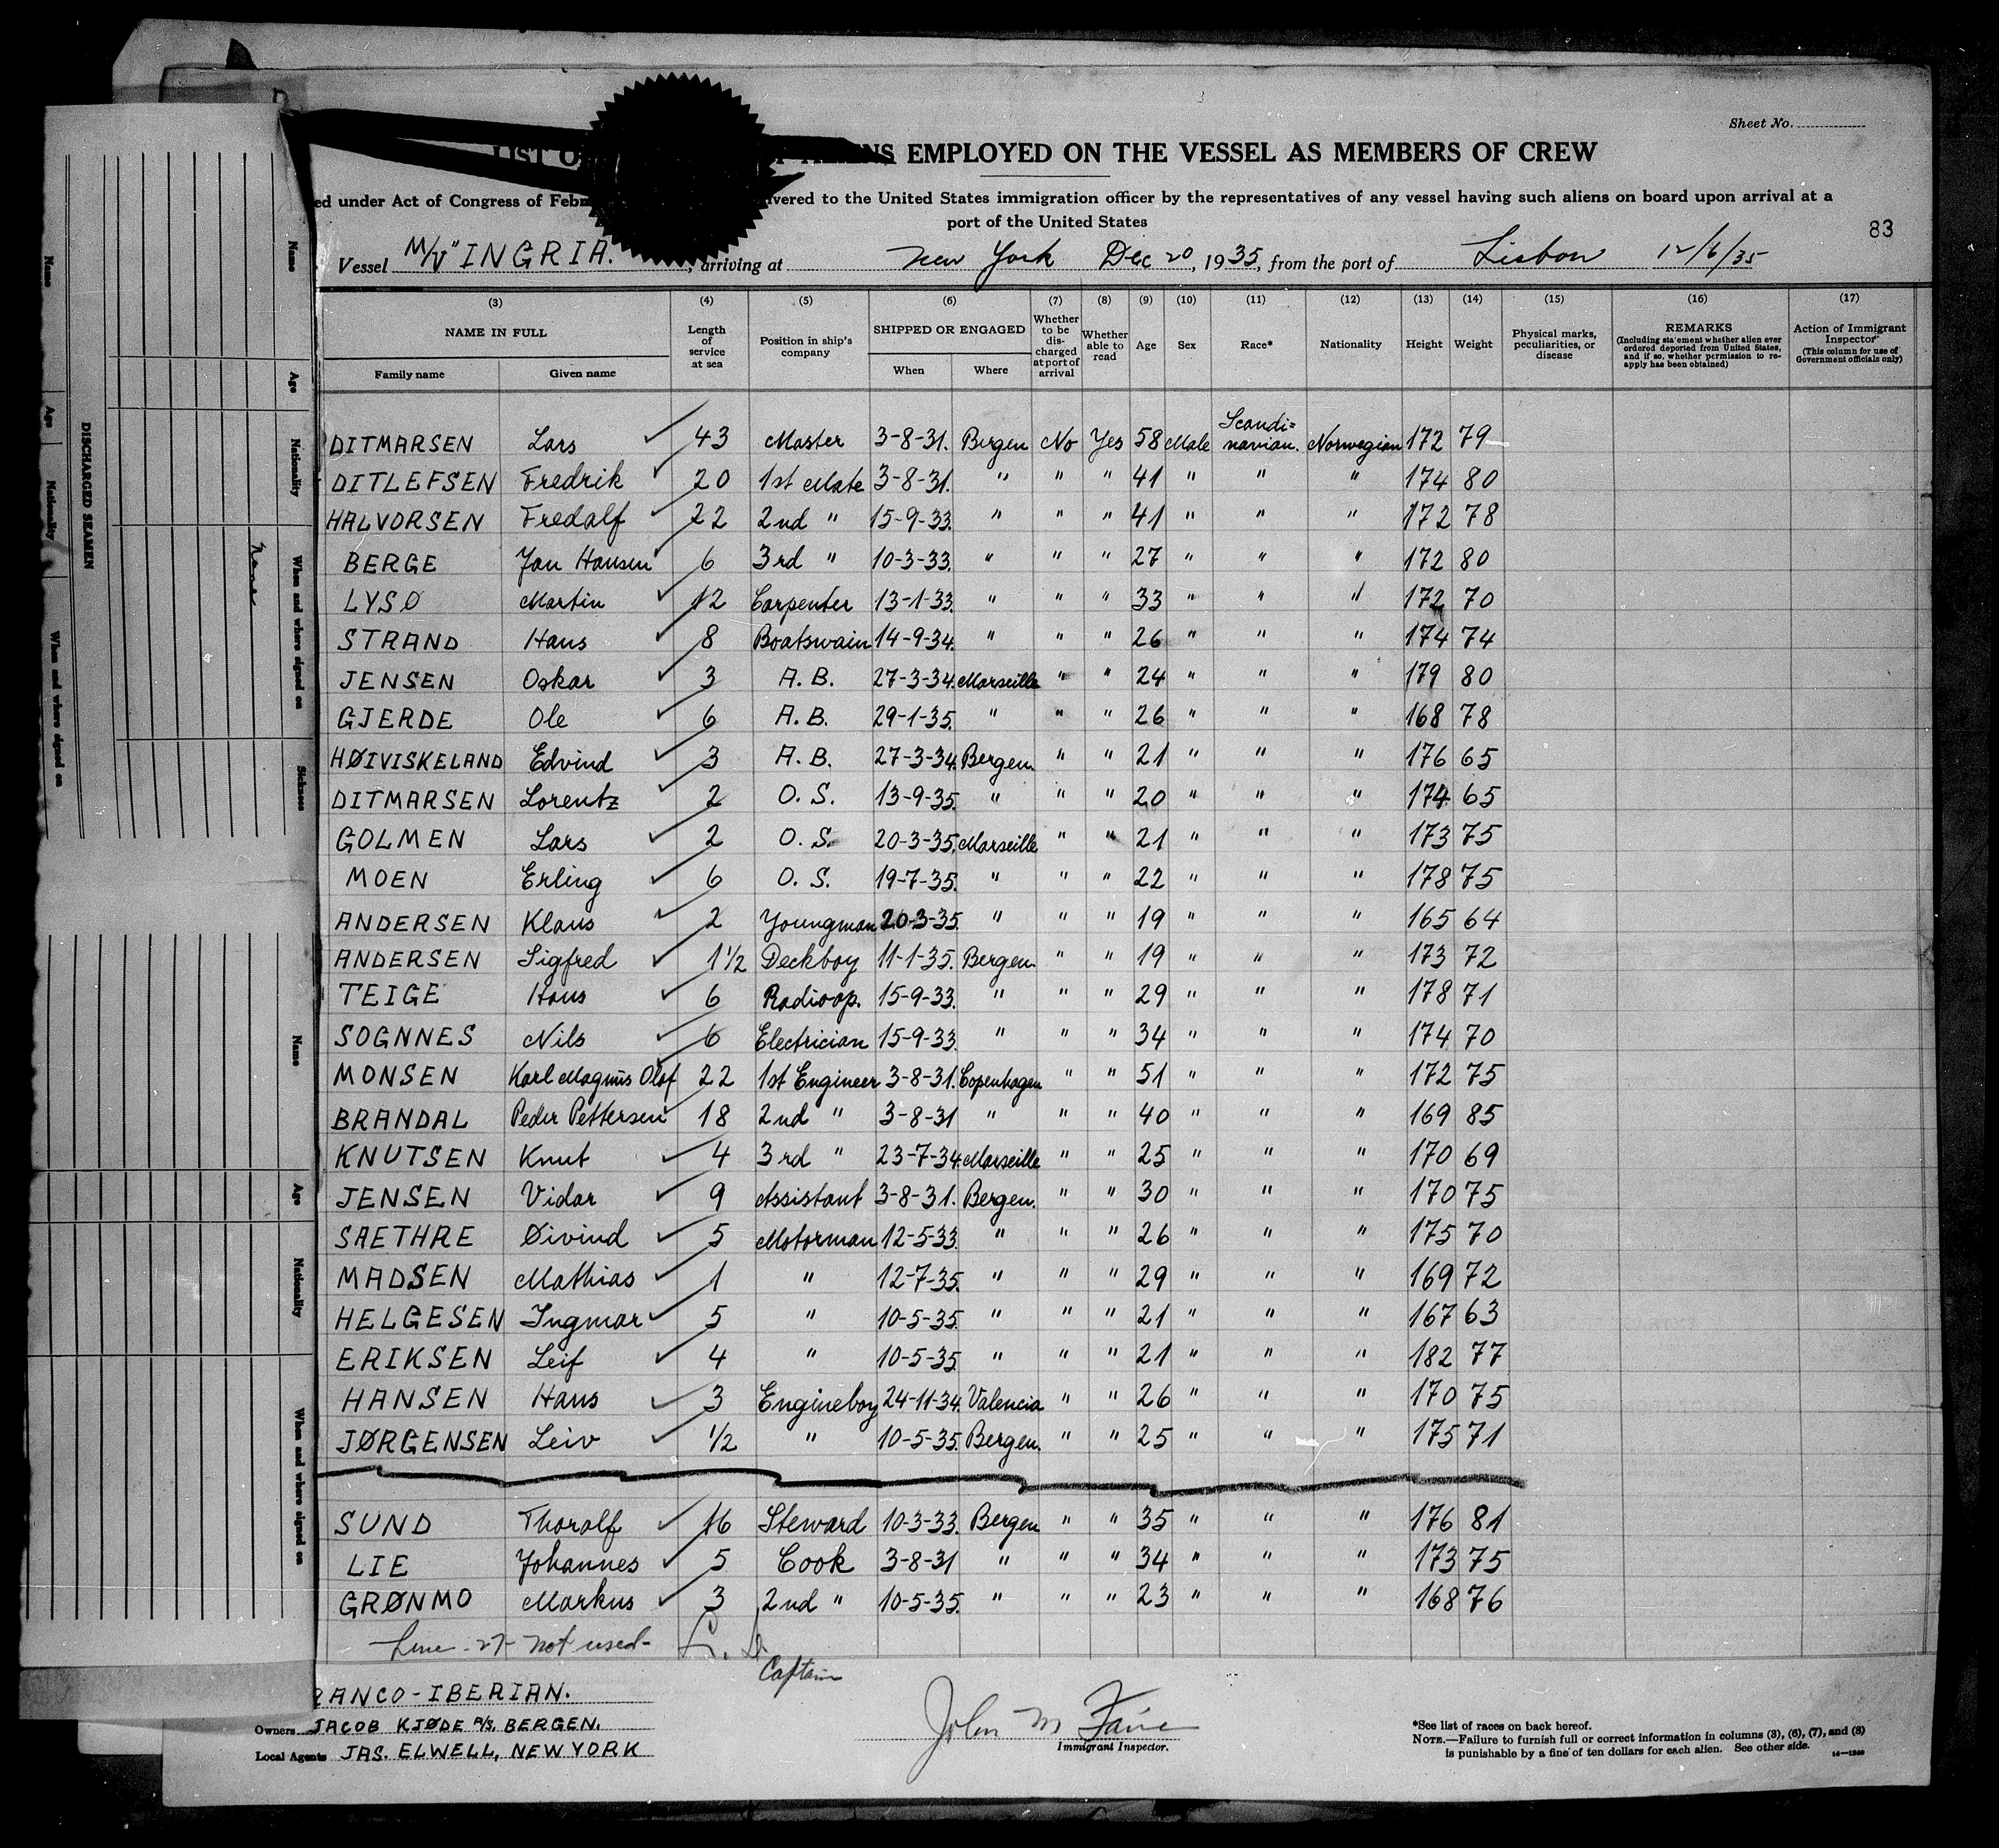 Sheet No.
LIST O ALIENS EMPLOYED ON THE VESSEL AS MEMBERS OF CREW
ed under Act of Congress of Febr ivered to the United States immigration officer by the representatives of any vessel having such aliens on board upon arrival at a
port of the United States
83
Vessel M/V "INGRIA. , arriving at New York Dec 20, 1935, from the port of Lisbon 12/6/35
(3) (4) (5) (6) (7) (8) (9) (10) (11) (12) (13) (14) (15) (16) (17)
NAME IN FULL Family name Given name Length of service at sea Position in ship's company SHIPPED OR ENGAGED When Where Whether to be discharged at port of arrival Whether able to read Age Sex Race* Nationality Height Weight Physical marks, peculiarities, or disease REMARKS (Including statement whether alien ever ordered deported from United States, and if so, whether permission to re-apply has been obtained) Action of Immigrant Inspector (This column for use of Government officials only)
DITMARSEN Lars ✓ 43 Master 3-8-31. Bergen No Yes 58 Male Scandi=navian. Norwegian 172 79
DITLEFSEN Fredrik ✓ 20 1st Mate 3-8-31. " " " 41 " " " 174 80
HALVORSEN Fredalf ✓ 22 2nd " 15-9-33. " " " 41 " " " 172 78
BERGE Jan Hansen ✓ 6 3rd " 10-3-33. " " " 27 " " " 172 80
LYSØ Martin ✓ 12 Carpenter 13-1-33. " " " 33 " " " 172 70
STRAND Hans ✓ 8 Boatswain 14-9-34. " " " 26 " " " 174 74
JENSEN Oskar ✓ 3 A. B. 27-3-34. Marseille " " 24 " " " 179 80
GJERDE Ole ✓ 6 A. B. 29-1-35. " " " 26 " " " 168 78
HØIVISKELAND Edvind ✓ 3 A. B. 27-3-34. Bergen. " " 21 " " " 176 65
DITMARSEN Lorentz ✓ 2 O. S. 13-9-35. " " " 20 " " " 174 65
GOLMEN Lars ✓ 2 O. S. 20-3-35. Marseille " " 21 " " " 173 75
MOEN Erling ✓ 6 O. S. 19-7-35. " " " 22 " " " 178 75
ANDERSEN Klaus ✓ 2 Youngman 20-3-35. " " " 19 " " " 165 64
ANDERSEN Sigfred ✓ 1½ Deckboy 11-1-35. Bergen. " " 19 " " " 173 72
TEIGE Hans ✓ 6 Radioop. 15-9-33. " " " 29 " " " 178 71
SOGNNES Nils ✓ 6 Electrician 15-9-33. " " " 34 " " " 174 70
MONSEN Karl Magnus Olaf ✓ 22 1st Engineer 3-8-31. Copenhagen " " 51 " " " 172 75
BRANDAL Peder Pettersen ✓ 18 2nd " 3-8-31 " " " 40 " " " 169 85
KNUTSEN Knut ✓ 4 3rd " 23-7-34. Marseille " " 25 " " " 170 69
JENSEN Vidar ✓ 9 Assistant 3-8-31. Bergen. " " 30 " " " 170 75
SAETHRE Øivind ✓ 5 Motorman 12-5-33. " " " 26 " " " 175 70
MADSEN Mathias ✓ 1 " 12-7-35. " " " 29 " " " 169 72
HELGESEN Ingmar ✓ 5 " 10-5-35. " " " 21 " " " 167 63
ERIKSEN Leif ✓ 4 " 10-5-35. " " " 21 " " " 182 77
HANSEN Hans ✓ 3 Engineboy 24-11-34. Valencia " " 26 " " " 170 75
JØRGENSEN Leiv ✓ ½ " 10-5-35. Bergen. " " 25 " " " 175 71
SUND Thoralf ✓ 16 Steward 10-3-33. Bergen " " 35 " " " 176 81
LIE Johannes ✓ 5 Cook 3-8-31 " " " 34 " " " 173 75
GRØNMO Markus ✓ 3 2nd " 10-5-35. " " " 23 " " " 168 76
Line -27- not used-
Captain
RANCO-IBERIAN.
Owners JACOB KJØDE A/S, BERGEN.
Local Agents JAS. ELWELL, NEW YORK
John M Faire
Immigrant Inspector.
*See list of races on back hereof.
NOTE.—Failure to furnish full or correct information in columns (3), (6), (7), and (8)
is punishable by a fine of ten dollars for each alien. See other side.
14—1240
DISCHARGED SEAMEN
Name Age Nationality When and where signed on
Name Age Nationality When and where signed on Sickness
None
Name Age Nationality When and where signed on